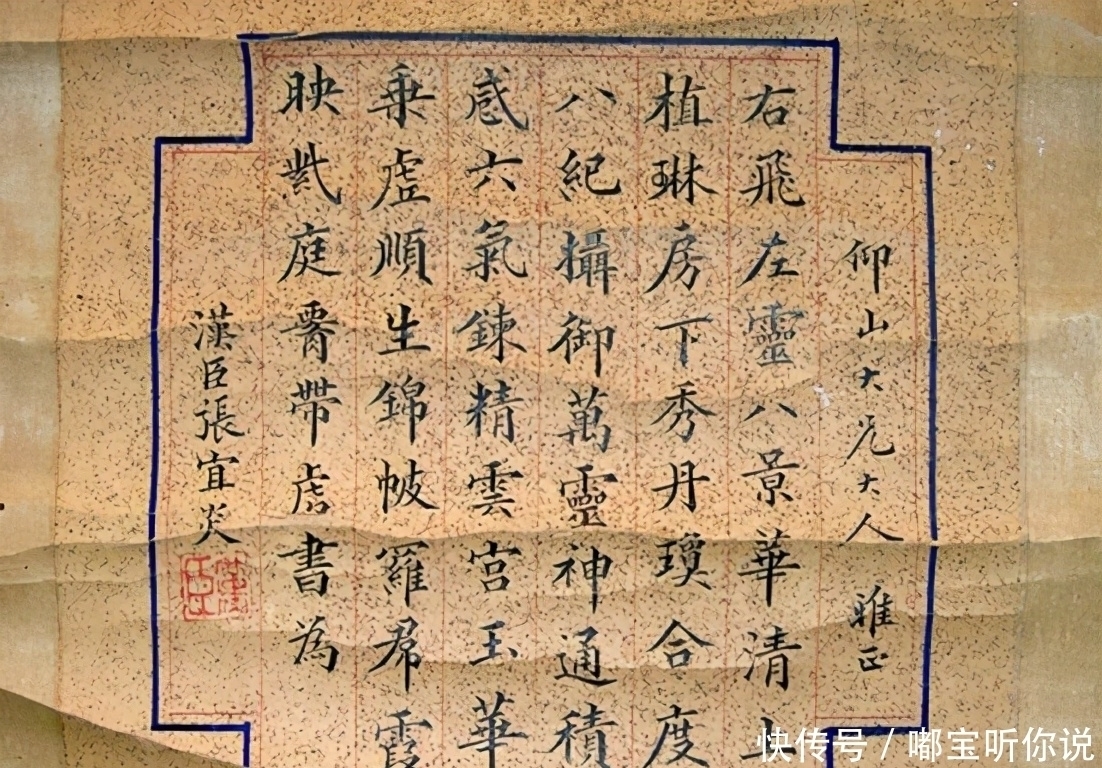 仰山大兄大人 雅正
右飛左靈八景華清上
植琳房下秀丹瓊合度
八紀攝御萬靈神通積
感六氣鍊精雲宮玉華
乗虛順生錦帔羅帬霞
映紫庭腎帶虎書為
漢臣張宜炎
漢臣
快传号 / 嘟宝听你说